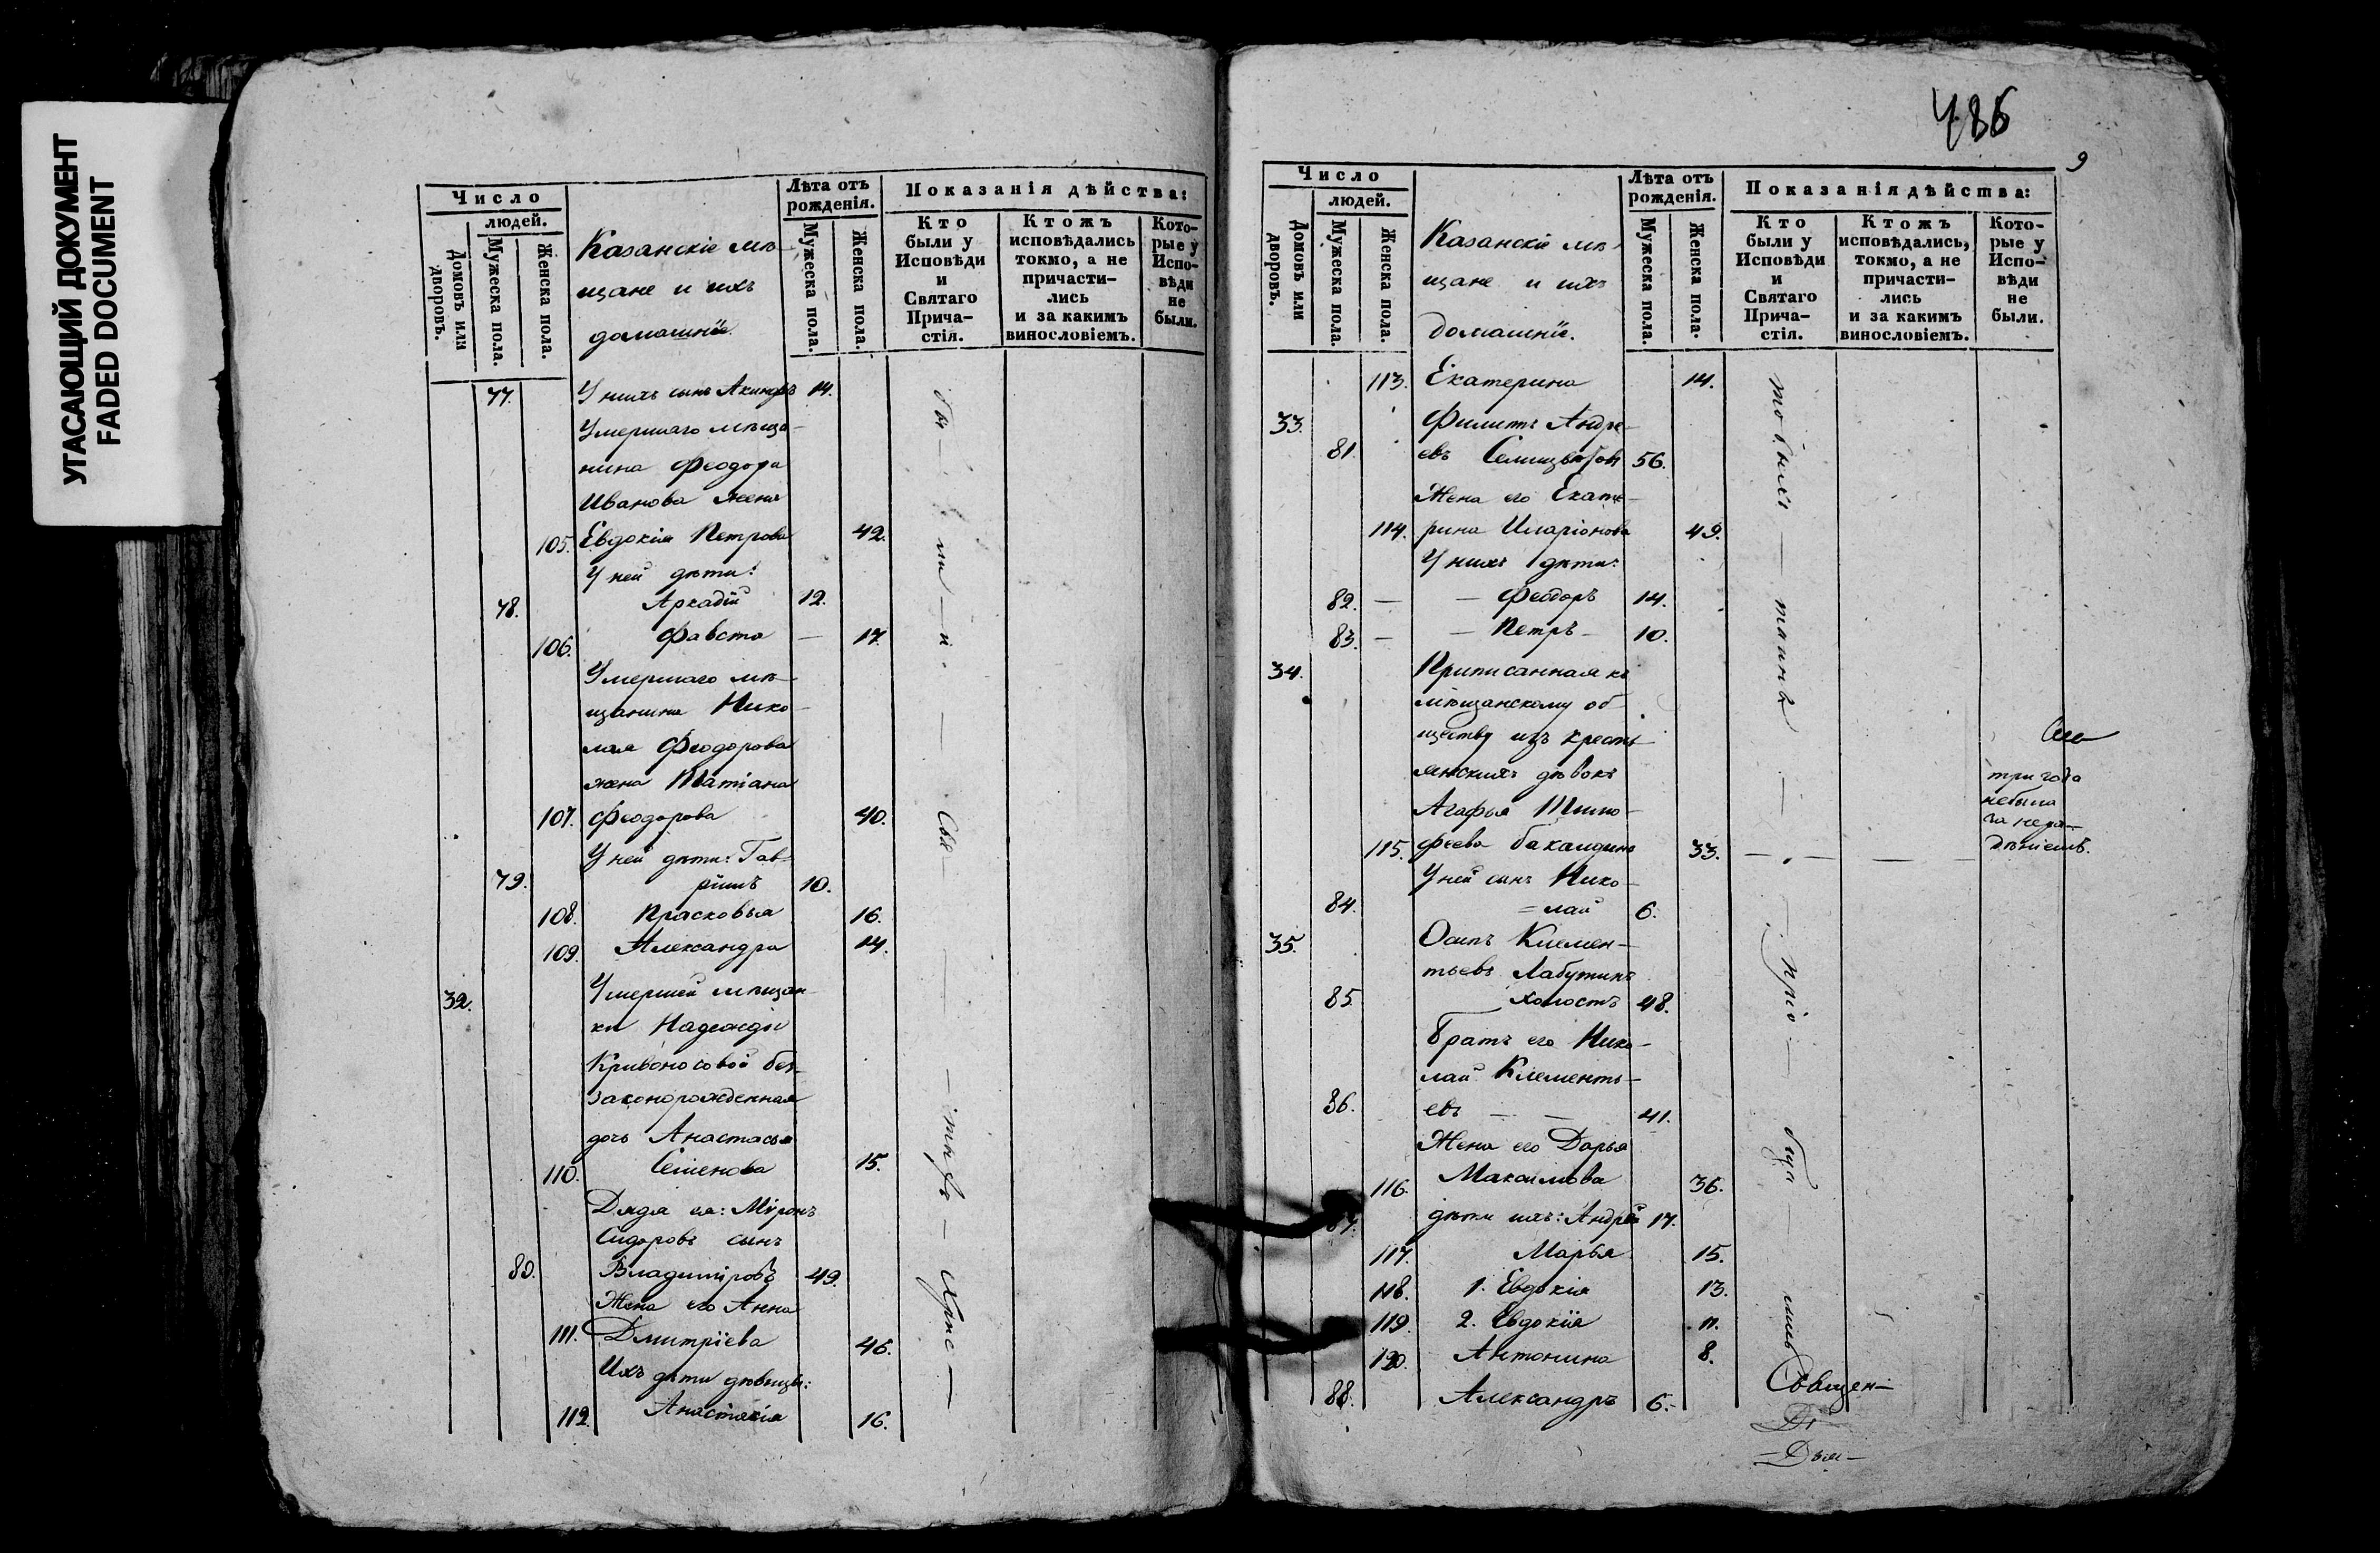 УГАСАЮЩИЙ ДОКУМЕНТ
FADED DOCUMENT
Число
людей.
Домовъ или дворовъ.
Мужеска пола.
Женска пола.
Казанскіе мѣ-
щане и ихъ
домашніе.
Лѣта отъ рожденія.
Мужеска пола.
Женска пола.
Показанія дѣйства:
Кто были у Исповѣди и Святаго Прича- стія.
Ктожъ исповѣдались токмо, а не причасти- лись и за какимъ винословіемъ.
Кото- рые у Испо- вѣди не были.
77. У нихъ сынъ 14.
Умершаго мѣща-
нина Феодора
Иванова жена
105. Евдокія Петрова 42.
У ней дѣти:
78. Аркадій 12.
106. Фавста — 17.
Умершаго мѣ-
щанина Нико-
лая Феодорова
жена Татіана
107. Феодорова 40.
У ней дѣти: Гав-
79. ріилъ 10.
108. Прасковья 16.
109. Александра 14.
32. Умершей мѣщан-
ки Надежды
Кривоносовой без-
законорожденная
дочь Анастасья
110. Семенова 15.
Дядя ея: Мѵронъ
Сидоровъ сынъ
80. Владиміровъ 49.
Жена его Анна
111. Дмитріева 46.
Ихъ дѣти дѣвицы:
112. Анастасія 16.
486
9
Число
людей.
Домовъ или дворовъ.
Мужеска пола.
Женска пола.
Казанскіе мѣ-
щане и ихъ
домашніе.
Лѣта отъ рожденія.
Мужеска пола.
Женска пола.
Показанія дѣйства:
Кто были у Исповѣди и Святаго Прича- стія.
Ктожъ исповѣдались, токмо, а не причасти- лись и за какимъ винословіемъ.
Кото- рые у Испо- вѣди не были.
113. Екатерина 14.
33. Филиппъ Андре-
81. евъ 56.
Жена его Екате-
114. рина Иларіонова 49.
У нихъ дѣти:
82. — — Феодоръ 14.
83. — — Петръ — 10.
34. Приписанная къ
мѣщанскому об
ществу изъ кресть-
янскихъ дѣвокъ
Агафья Тимо-
115. феева Бакалдина 33. — — — —
три года
небыла
за нера-
дѣніемъ.
У ней сынъ Нико-
84. = лай 6.
35. Осипъ Клемен-
тьевъ Лабутинъ
85. холостъ 48.
Братъ его Нико-
лай Клементь-
86. евъ — — 41.
Жена его Дарья
116. Максимова 36.
87. дѣти ихъ: Андрей 17.
117. Марья 15.
118. 1. Евдокія 13.
119. 2. Евдокія 11.
120. Антонина 8.
88. Александръ 6.-
Священ-